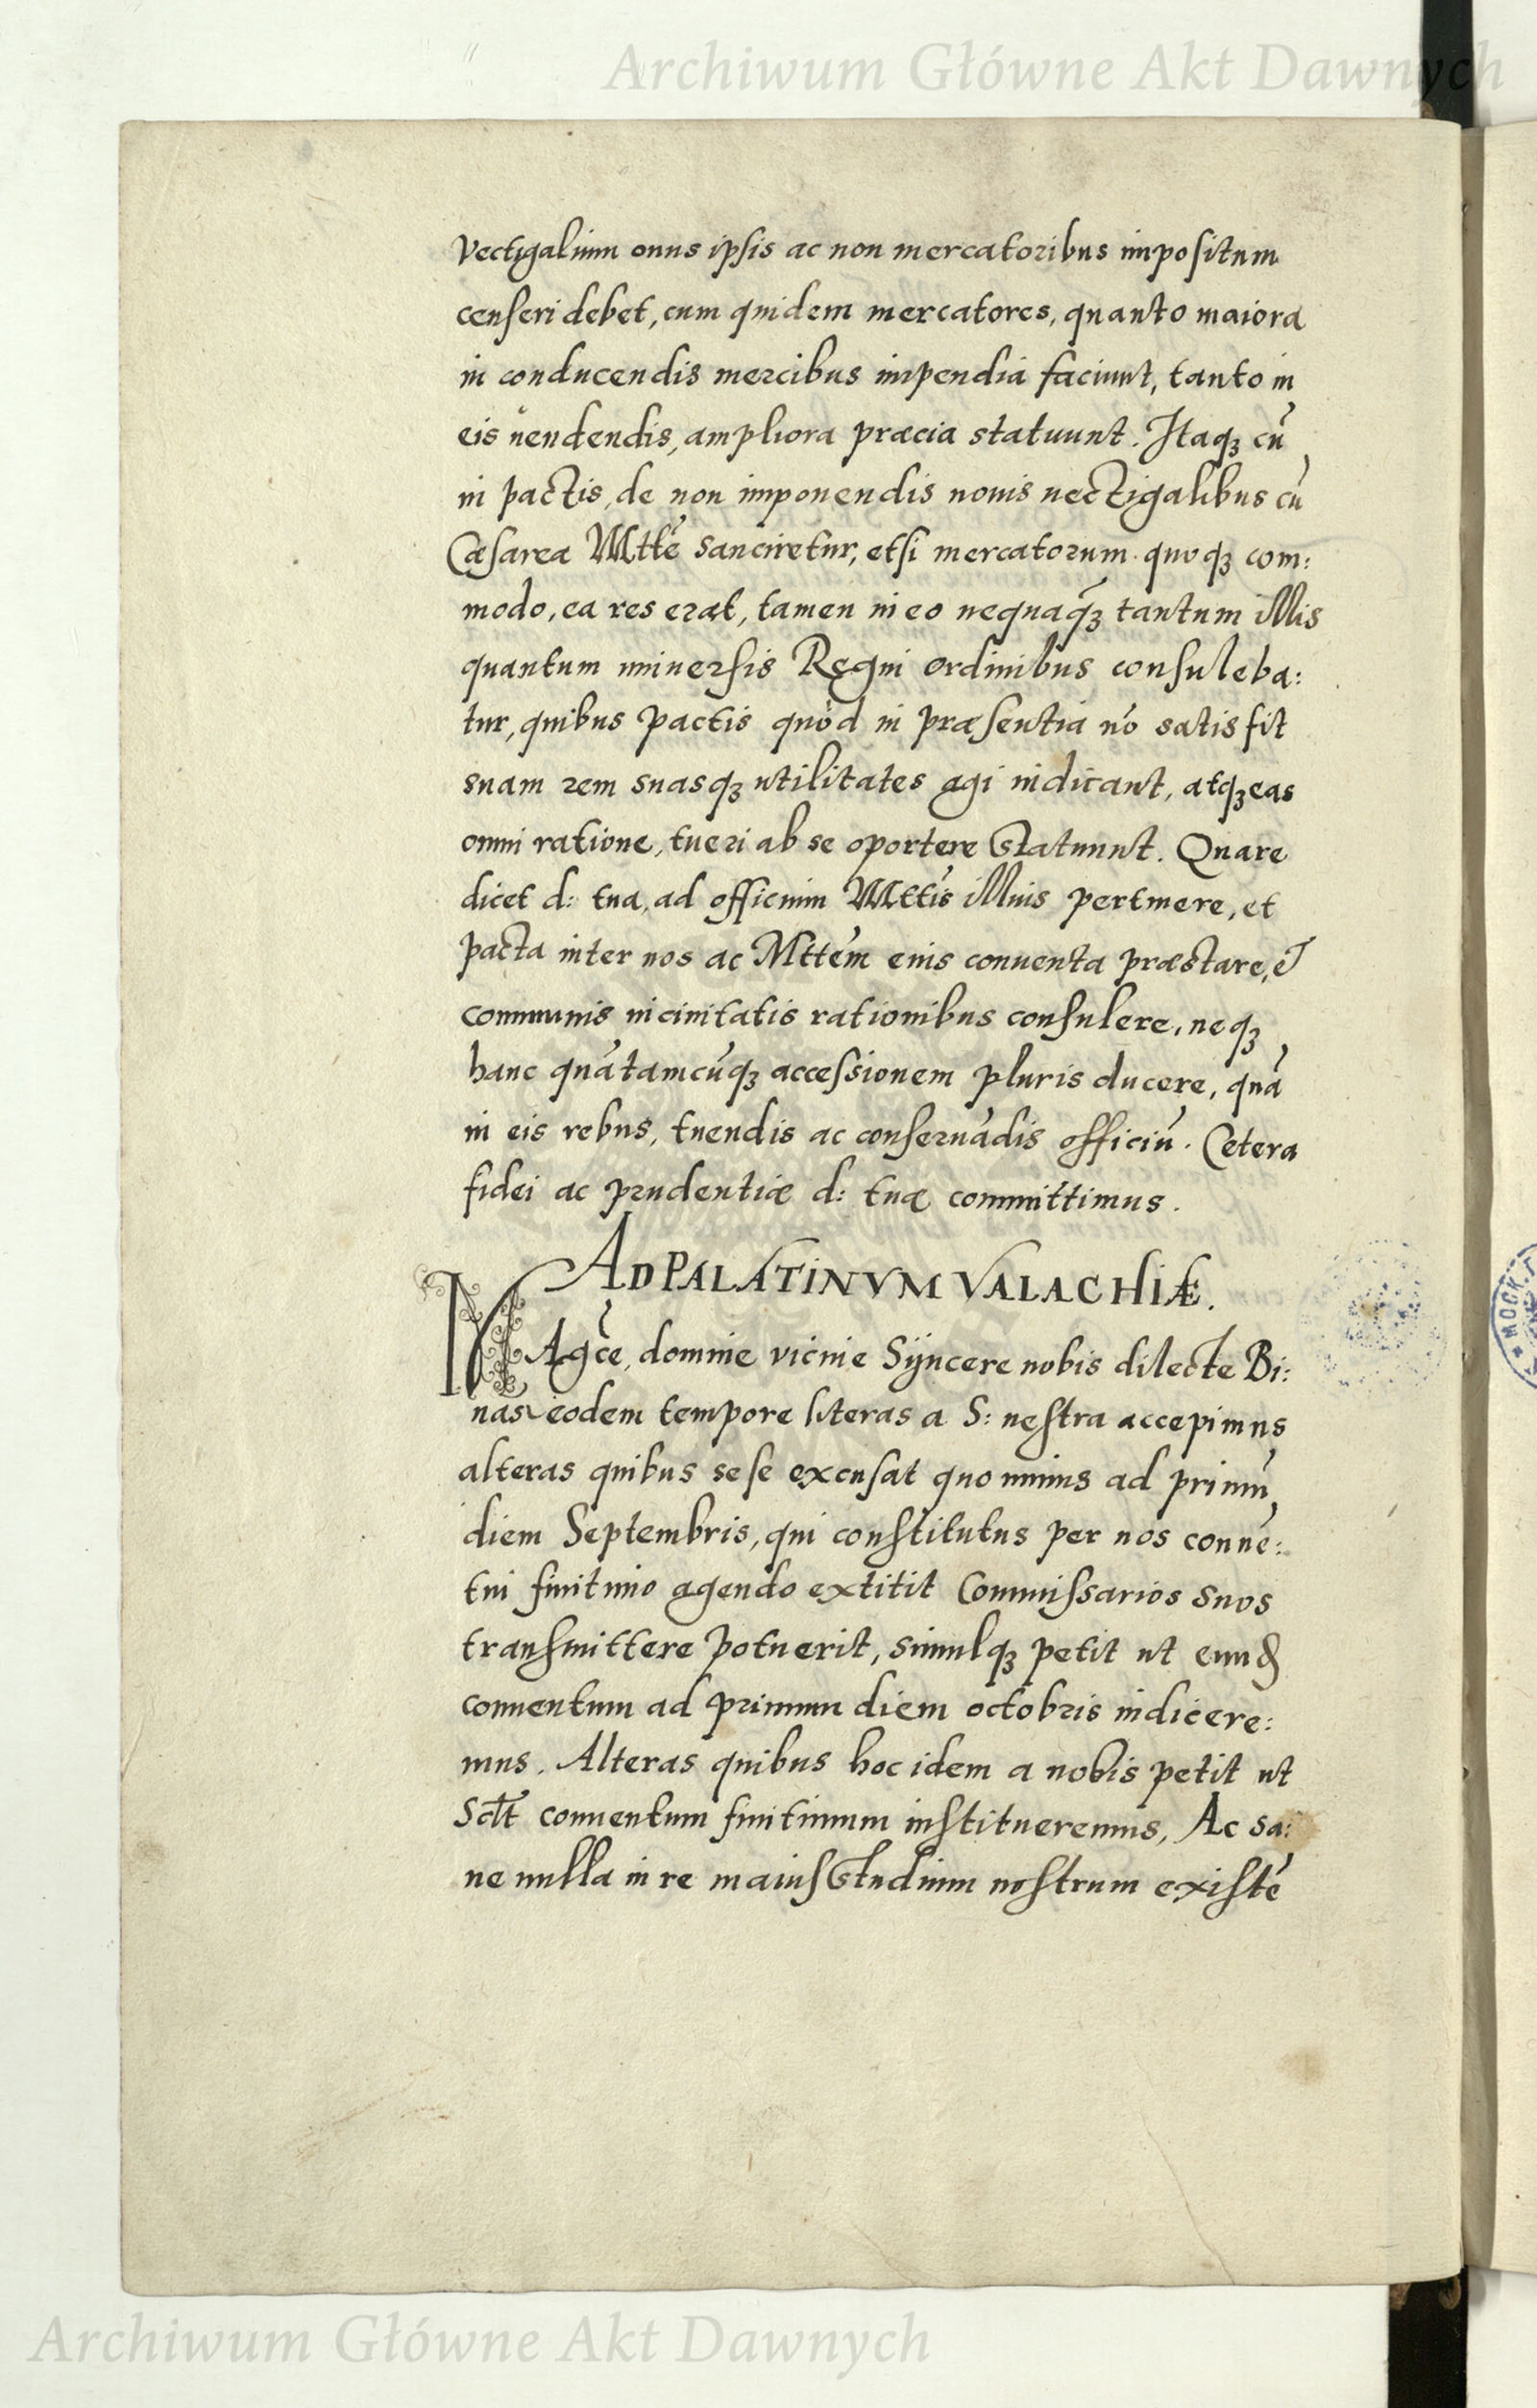 Archiwum Główne Akt Dawnych
vectigalium onus ipsis ac non mercatoribus impositum
censeri debet, cum quidem mercatores, quanto maiora
in conducendis mercibus impendia faciunt, tanto in
eis uendendis, ampliora præcia statuunt. Itaqꝫ cū
in pactis, de non imponendis nouis uectigalibus cū
Cæsarea Mtte͂ sanciretur, etsi mercatorum quoqꝫ com:
modo, ea res erat, tamen in eo nequaq̄ꝫ tantum illis
quantum uniuersis Regni ordinibus consuleba:
tur, quibus pactis quòd in præsentia nō satis fit
suam rem suasqꝫ utilitates agi iudicant, atqꝫ eas
omni ratione, tueri ab se oportere statuunt. Quare
dicet d: tua, ad officium Mttis illius pertinere, et
pacta inter nos ac Mttem eius conuenta præstare, et
communis uicinitatis rationibus consulere, neqꝫ
hanc quātamcūqꝫ accessionem pluris ducere, quā
in eis rebus, tuendis ac conseruādis officiū. Cetera
fidei ac prudentiæ d: tuæ committimus.
AD PALATINVM VALACHIÆ.
MAgce, domine vicine Sÿncere nobis dilecte Bi:
nas eodem tempore literas a S: uestra accepimus
alteras quibus sese excusat quo minus ad primū
diem Septembris, qui constitutus per nos conue:
tui finitimo agendo extitit Commissarios suos
transmittere potuerit, simulqꝫ petit ut eund
conuentum ad primum diem octobris indicere:
mus. Alteras quibus hoc idem a nobis petit ut
Sct̄ conuentum finitimum institueremus, Ac sa:
ne nulla in re maius studium nostrum existē
MOCK.
Archiwum Główne Akt Dawnych